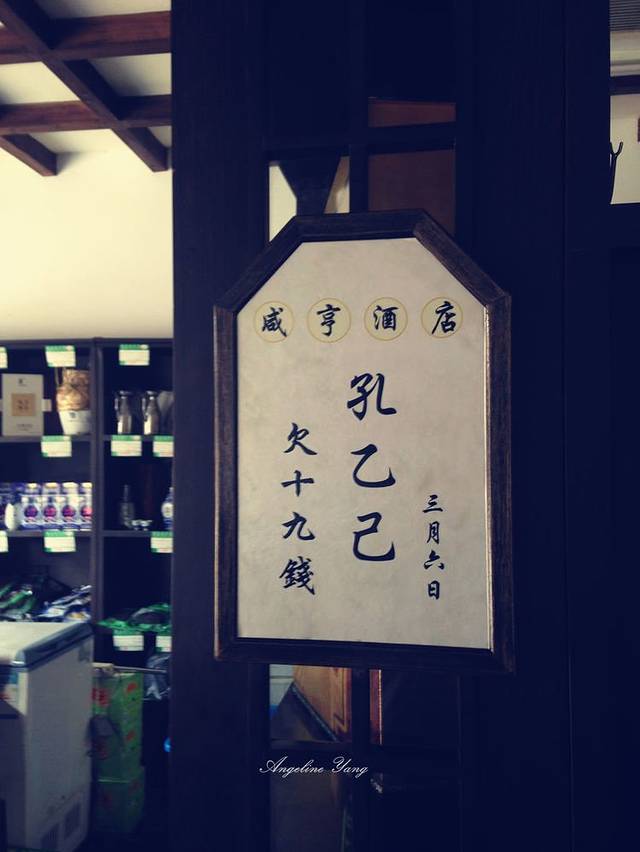 咸亨酒店
三月六日
孔乙己
欠十九錢
Angeline Yang